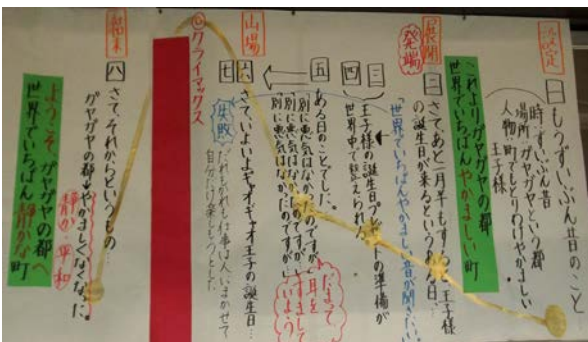 設定
一 もうずいぶん昔のこと
時 ずいぶん昔
場所 ガヤガヤという都
人物 町でもとりわけやかましい
王子様
これよりガヤガヤの都
世界でいちばんやかましい町
展開
発端
二 さてあと一月半もすると王子様
の誕生日が来るというある日、
「世界でいちばんやかましい音が聞きたい」
三 王子様の誕生日プレゼントの準備が
四 世界中で整えられた
五 ある日のことでした。
「別に悪気はなかったのですが
「別に悪気はなかったのですが…
「別に悪気はなかったのですが…
だまって
耳を
すまして
いよう
山場
六 さて、いよいよギャオギャオ王子の誕生日…
七
失敗
だれもかれも仕事は人にまかせて
自分だけ楽しもうとした
クライマックス
結末
八 さて、それからというもの…
ガヤガヤの都→やかましくなくなった。
静か・平和
ようこそ ガヤガヤの都へ
世界でいちばん静かな町